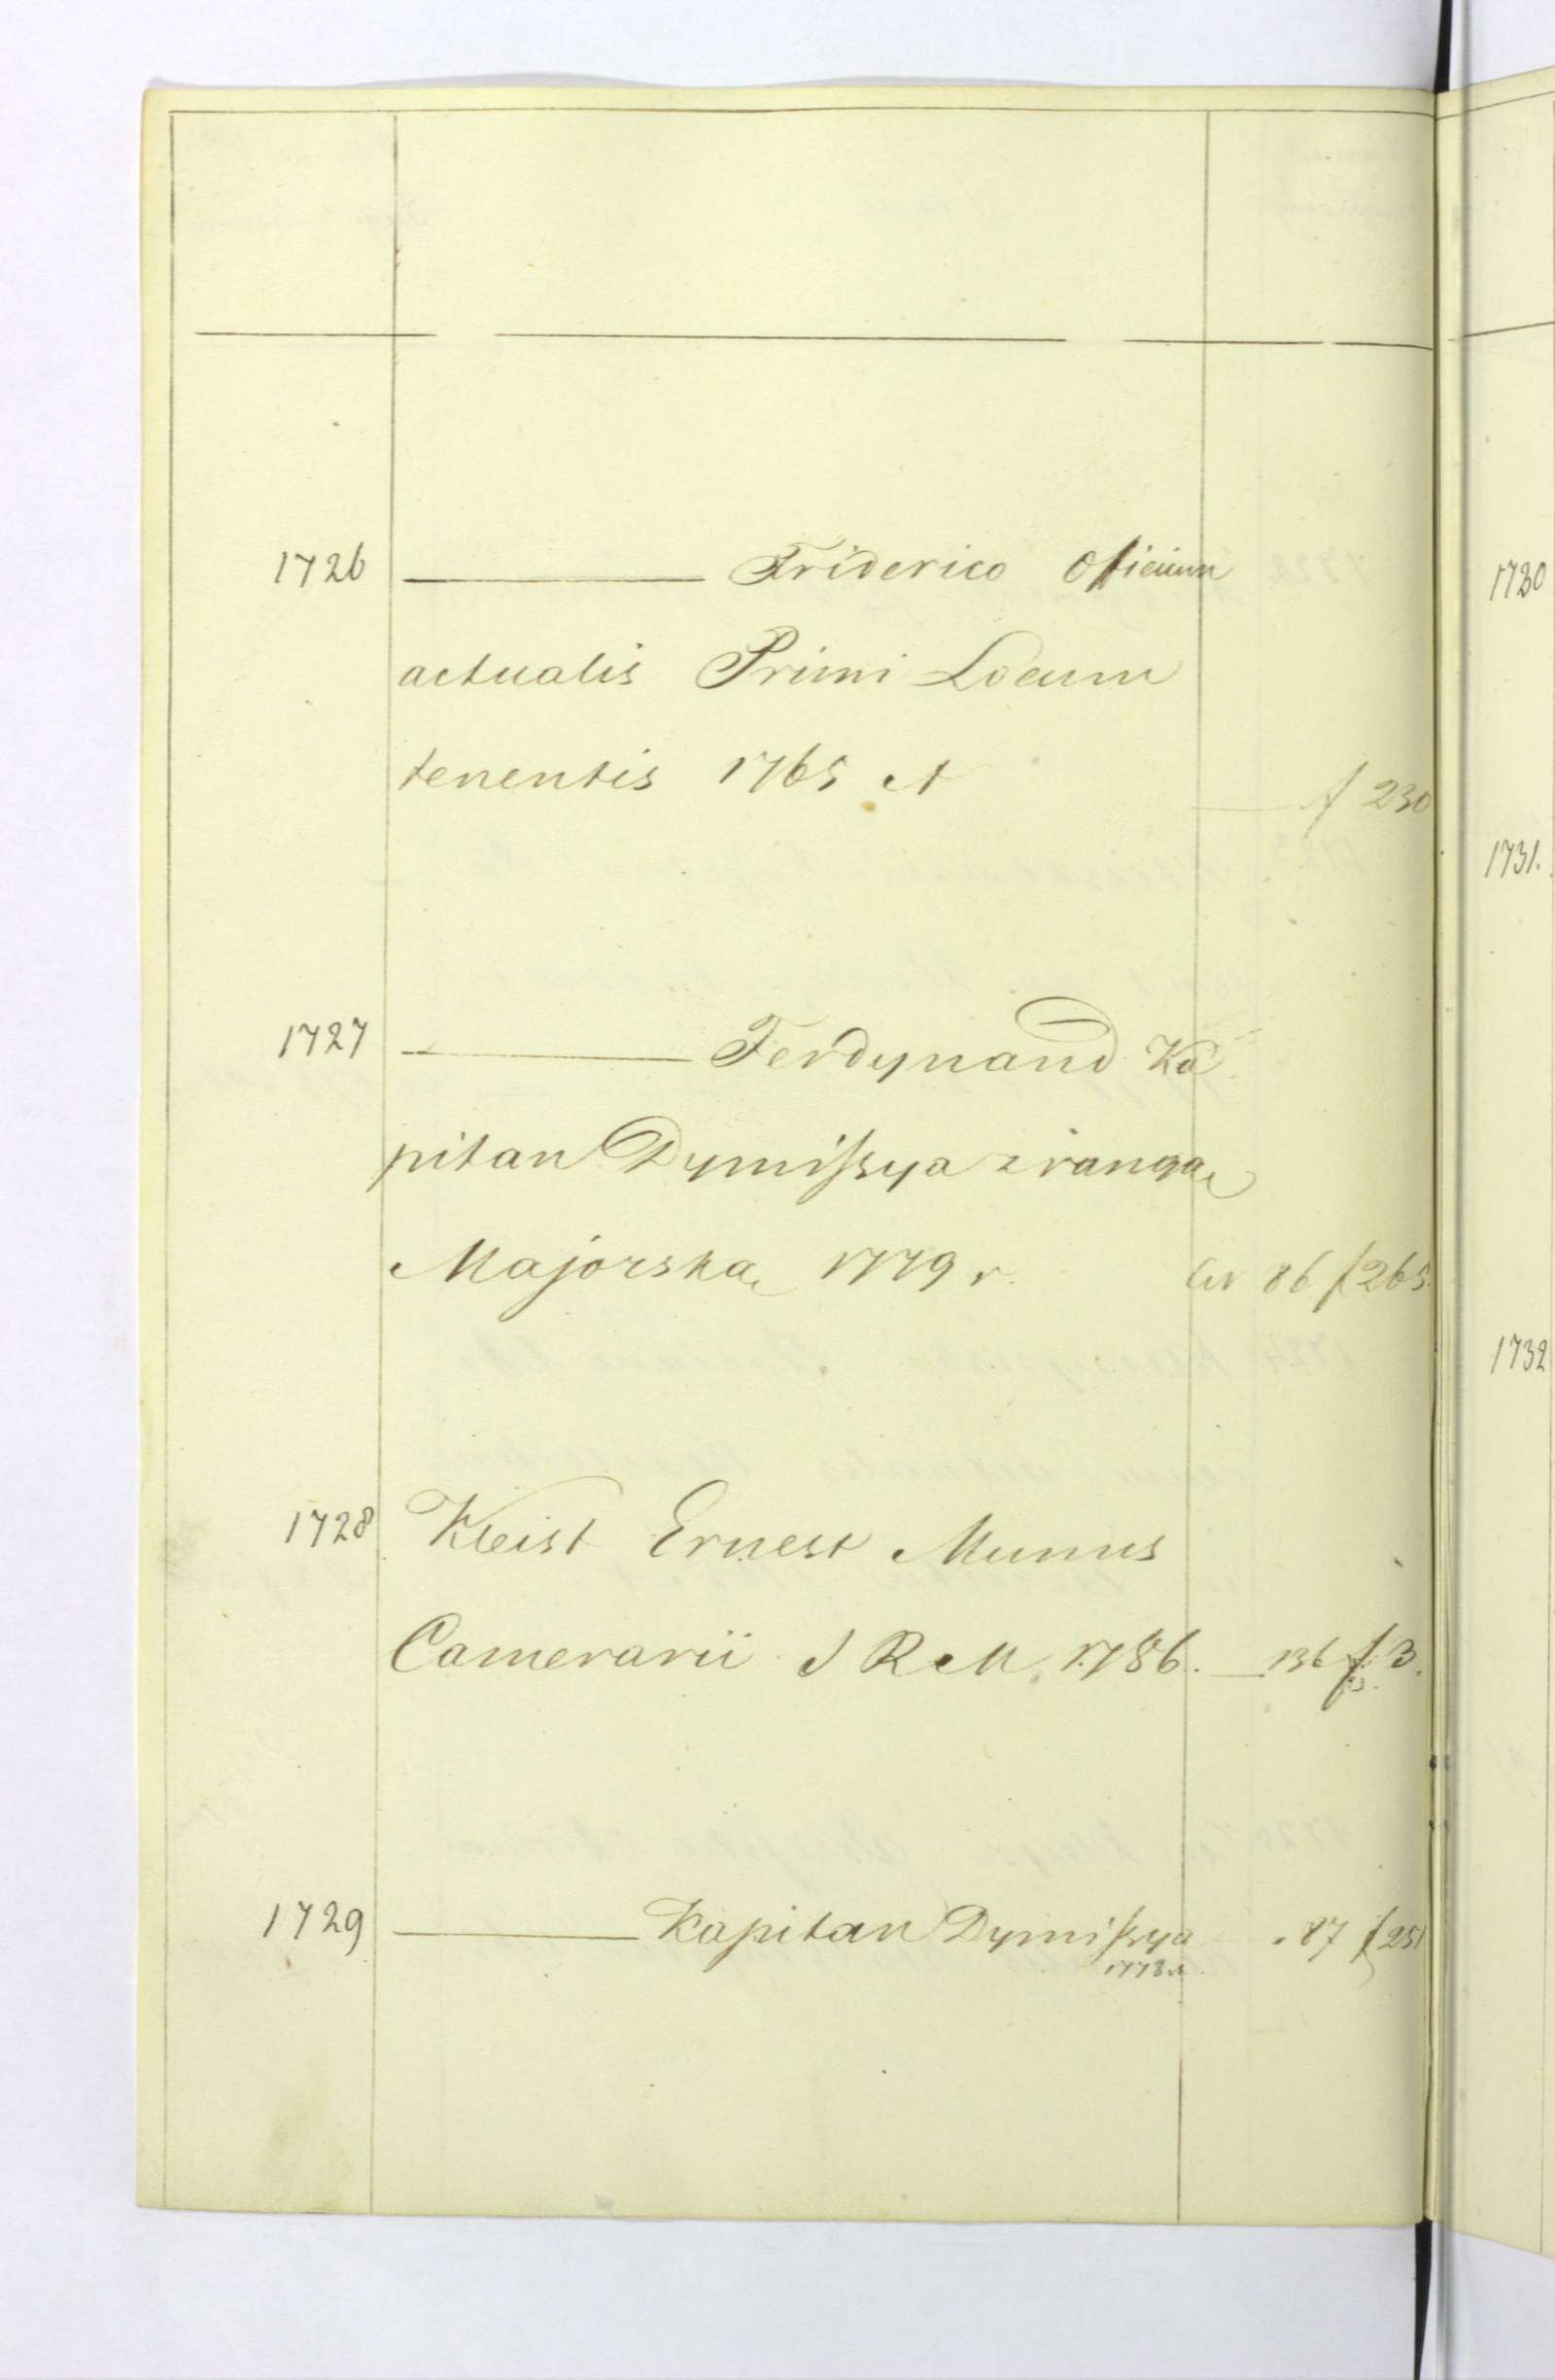 1726 ——— Friderico Officium
actualis Primi Locum
tenentis 1765 et — f 230
1727 ——— Ferdynand Ka
pitan Dymissya z rangą
Majorską 1779 r. Ces 86 f 265.
1728 Kleist Ernest Munus
Camerarii S R M. 1786. — 136 f 3.
1729 ——— Kapitan Dymissya " 87 f 251
1778 r.
1730
1731.
1732